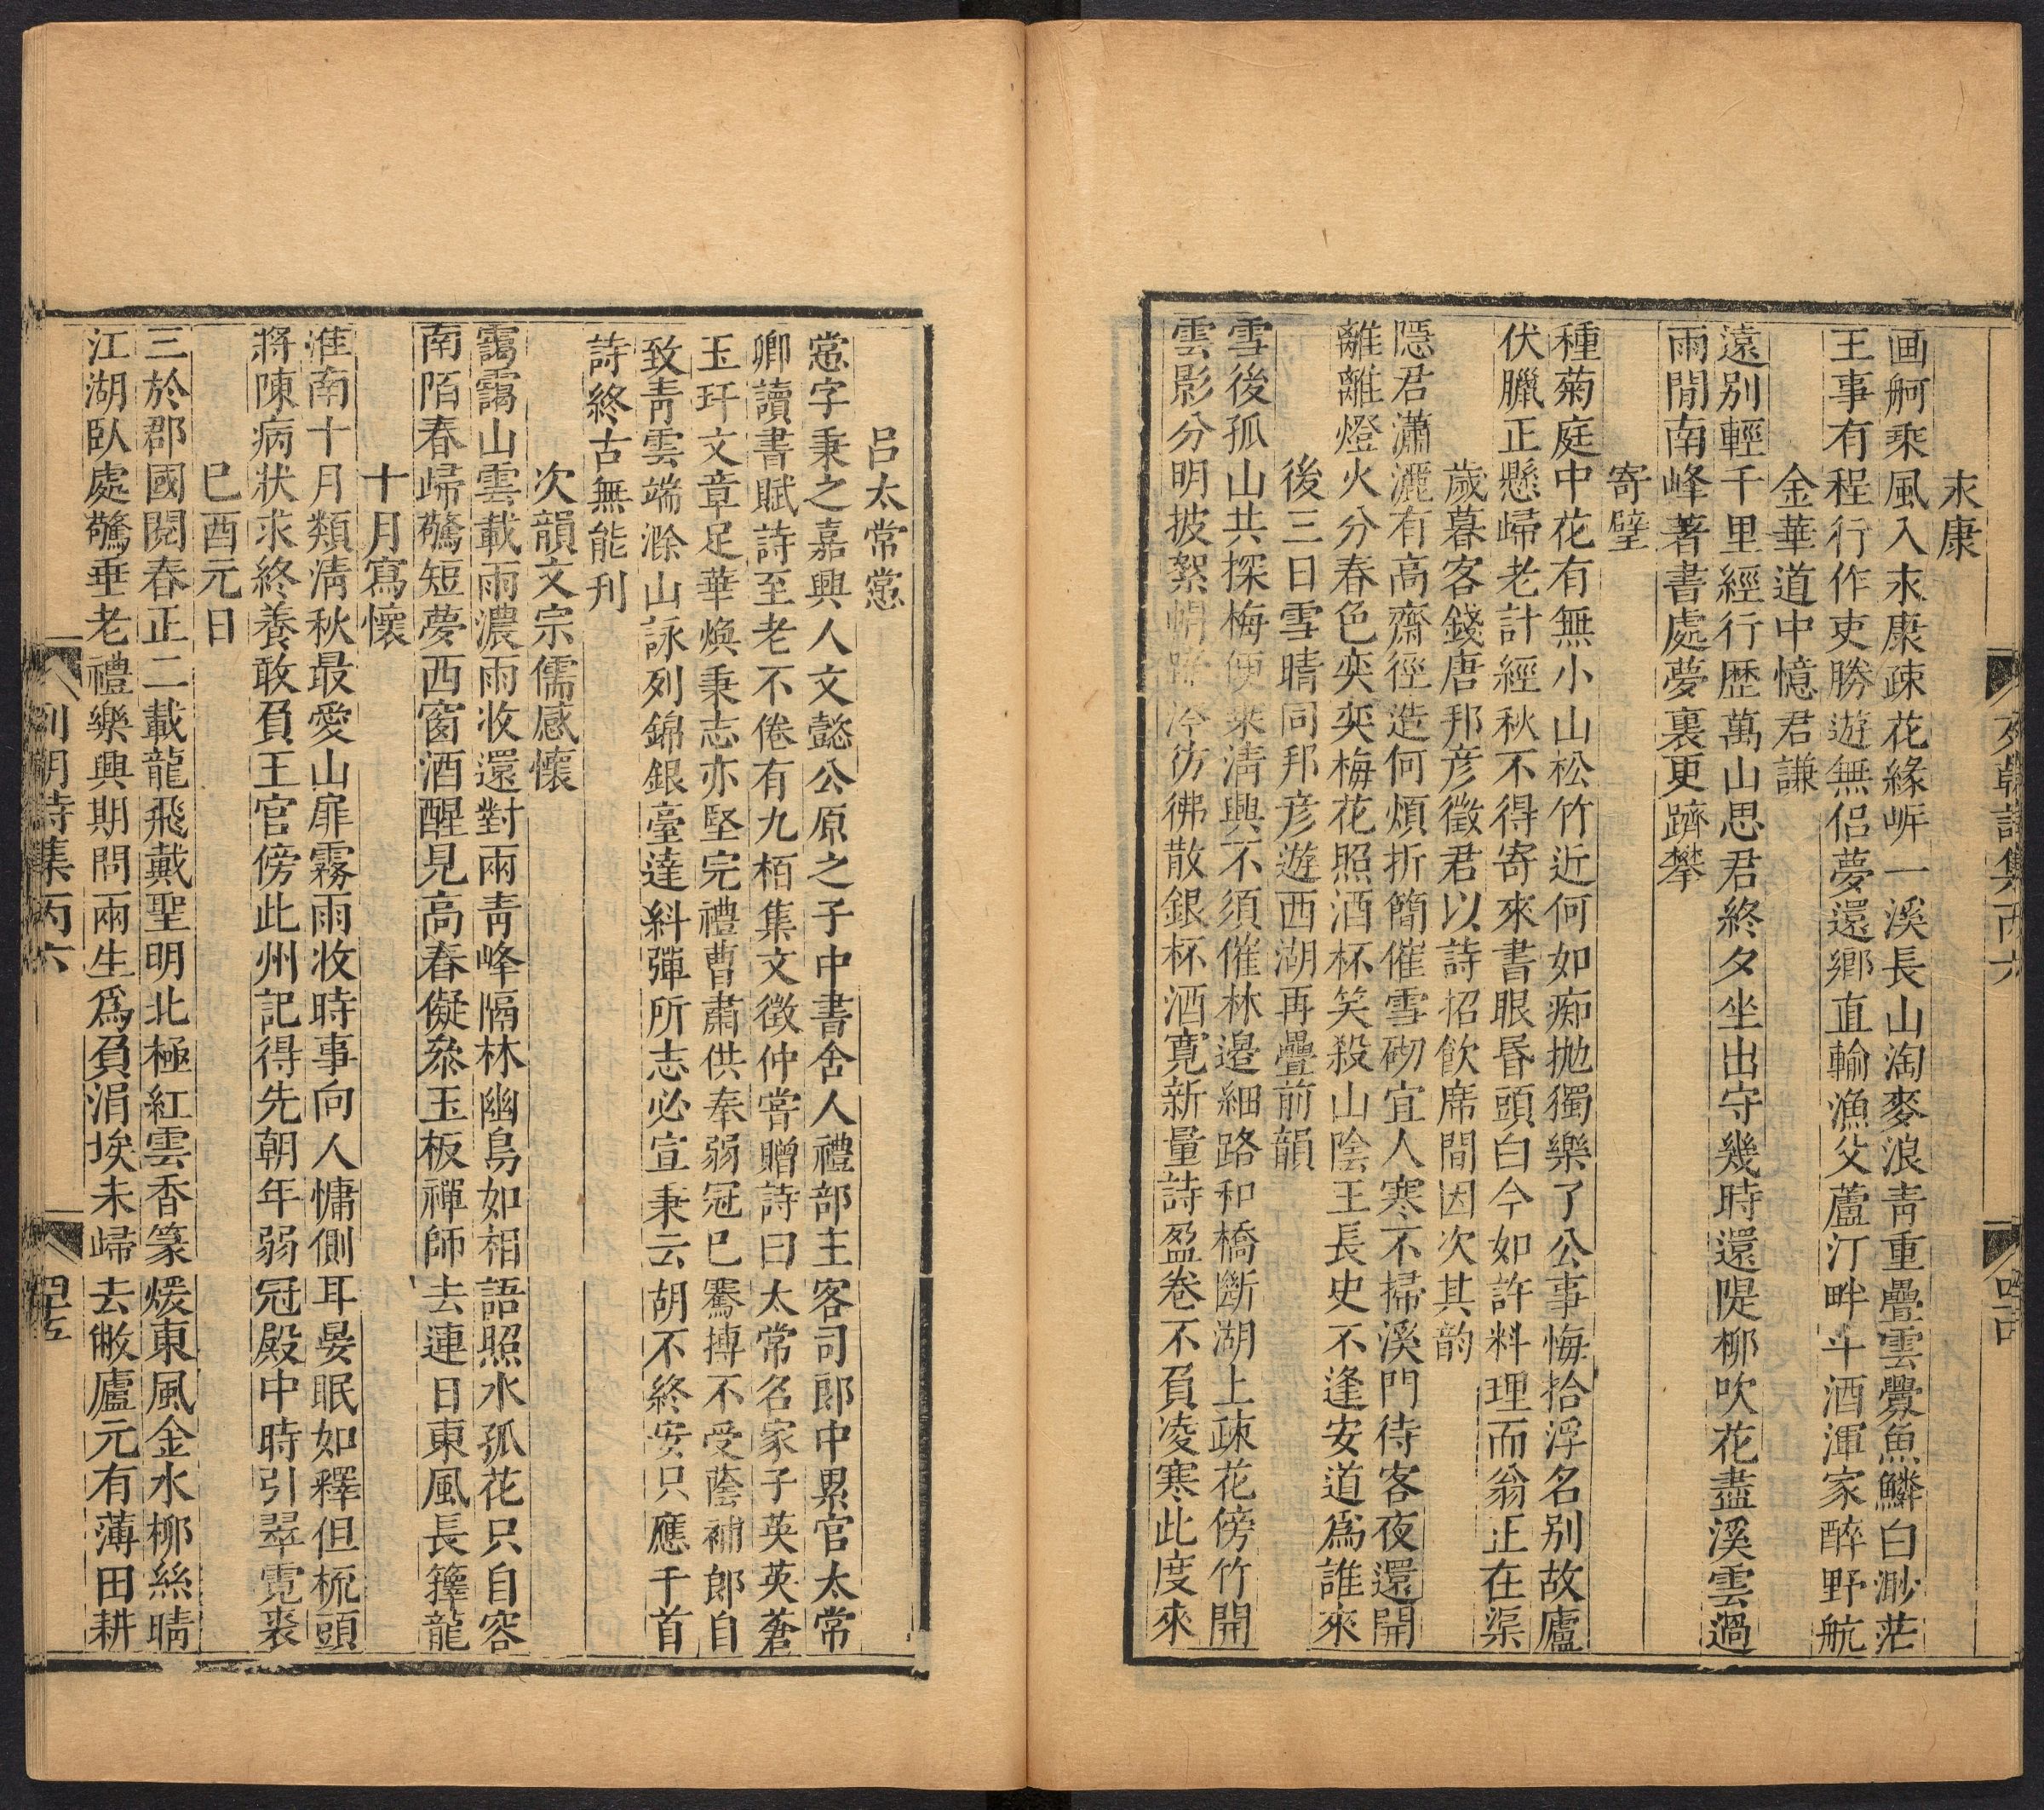 永康
画舸乘風入永康疎花緣岍一溪長山淘麥浪青重疊雲釁魚鱗白渺茫
王事有程行作吏勝遊無侶夢還鄉直輸漁父蘆汀畔斗酒渾家醉野航
金華道中憶君謙
遠别輕千里經行歷萬山思君終夕坐出守幾時還隄柳吹花盡溪雲過
雨閒南峰著書處夢裏更躋攀
寄壁
種菊庭中花有無小山松竹近何如痴拋獨樂了公事悔拾浮名别故廬
伏臘正懸歸老計經秋不得寄來書眼昏頭白今如許料理而翁正在渠
歲暮客錢唐邦彦徵君以詩招飲席間因次其韵
隱君瀟灑有高齋徑造何煩折簡催雪砌宜人寒不掃溪門待客夜還開
離離燈火分春色奕奕梅花照酒杯笑殺山陰王長史不逢安道爲誰來
後三日雪晴同邦彦遊西湖再疊前韻
雪後孤山共探梅便乘淸興不須催林邊細路和橋斷湖上疎花傍竹開
雲影分明披絮帽 冷彷彿散銀杯酒寬新量詩盈卷不負凌寒此度來
列朝詩集丙六
呂太常㦂
㦂字秉之嘉興人文懿公原之子中書舍人禮部主客司郎中累官太常
卿讀書賦詩至老不倦有九栢集文徵仲嘗贈詩曰太常名家子英英蒼
玉玕文章足華煥秉志亦堅完禮曹肅供奉弱冠已騫摶不受蔭補郎自
致靑雲端滁山詠列錦銀臺達紏彈所志必宣秉云胡不終安只應千首
詩終古無能刊
次韻文宗儒感懷
靄靄山雲載雨濃雨收還對兩靑峰隔林幽鳥如相語照水孤花只自容
南陌春歸驚短夢西窗酒醒見高舂儗叅玉板禪師去連日東風長籜龍
十月寫懷
淮南十月類淸秋最愛山扉霧雨收時事向人慵側耳晏眠如釋但梳頭
將陳病狀求終養敢負王官傍此州記得先朝年弱冠殿中時引翠雲裘
巳酉元日
三於郡國閱春正二載龍飛戴聖明北極紅雲香篆煖東風金水柳絲晴
江湖臥處驚垂老禮樂興期問兩生爲負涓埃未歸去敝廬元有薄田耕
列朝詩集丙六